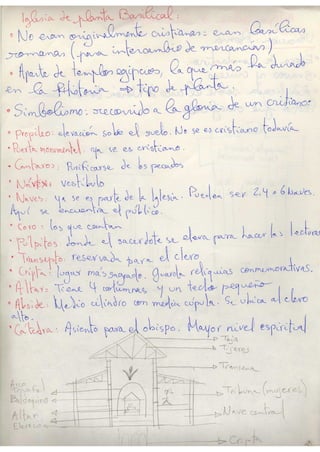 Iglesia de planta Basilical:
• No eran originalmente cristianas: eran basílicas
romanas (para intercambio de mercancías)
• Aparte de templos egipcios, la que más ha durado
en la Historia → tipo de planta.
• Simbolismo: recorrido a la gloria de un cristiano
• Propileo: elevación sobre el suelo. No se es cristiano todavía
• Puerta monumental: ya se es cristiano.
• Cántaros: Purificarse de los pecados
• Nártex: vestíbulo
• Naves: ya se es parte de la Iglesia. Pueden ser 2, 4 o 6 Naves.
Aquí se encuentra el público.
• Coro: los que cantan
• Púlpitos: donde el sacerdote se eleva para hacer las lecturas
• Transepto: reservada para el clero
• Cripta: lugar más sagrado. Guarda reliquias conmemorativas.
• Altar: Tiene 4 columnas y un techo pequeño
• Abside: Medio cilindro con media cúpula. Se ubica al clero
alto.
• Cátedra: Asiento para el obispo. Mayor nivel espiritual
Teja
Tijeras
Arco
Triunfal
Baldaquino
Tribuna (mujeres)
Altar
Nave central
Cripta